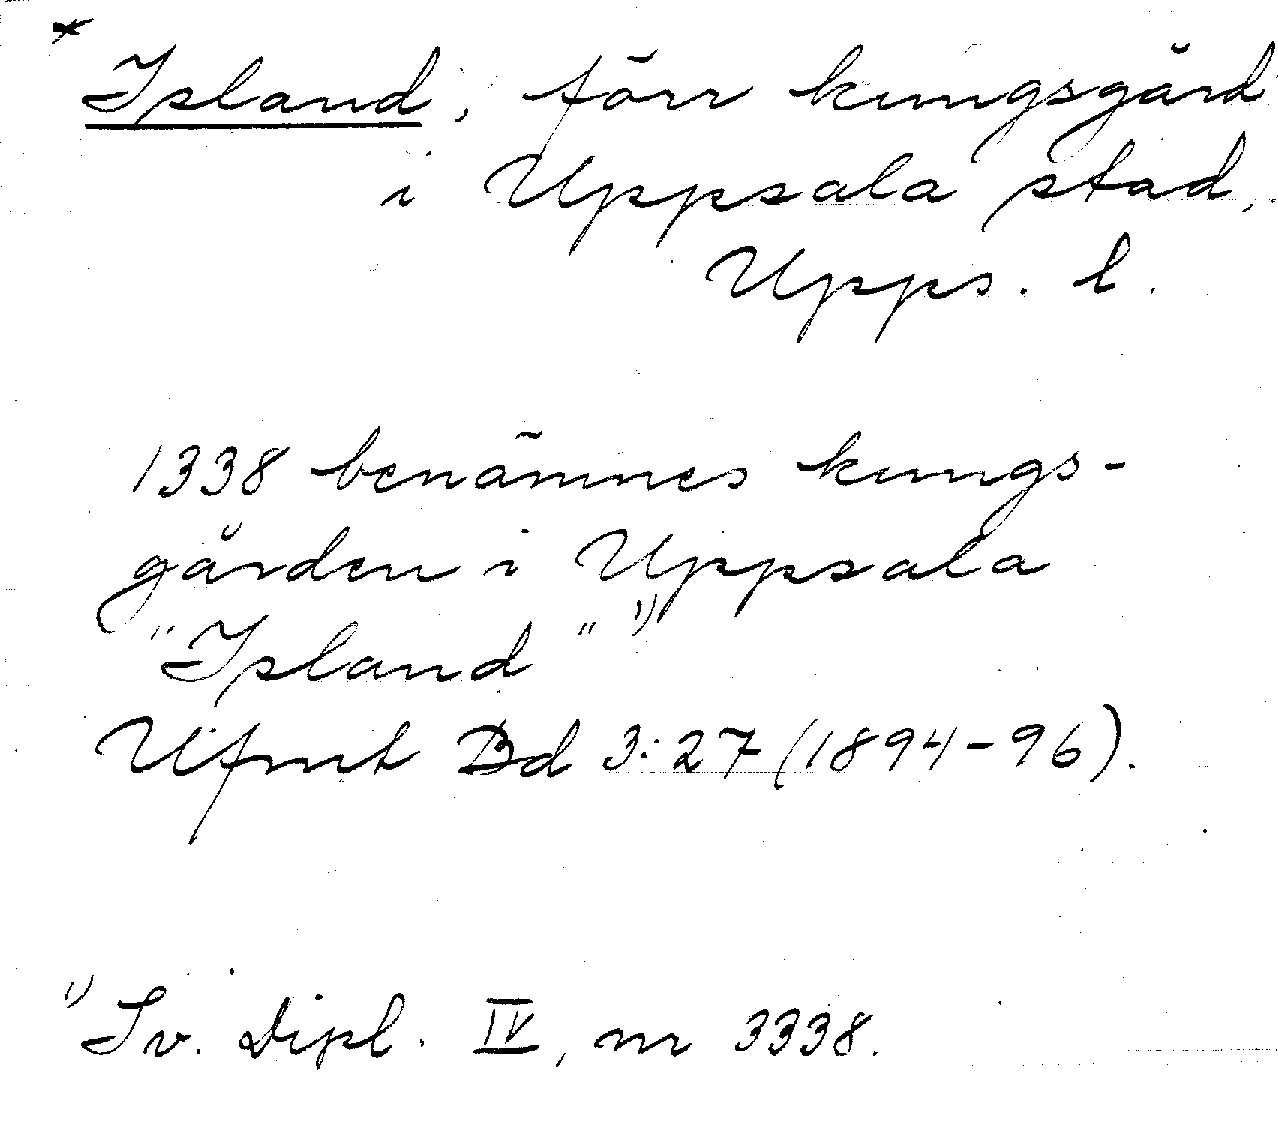 * Island, förr kungsgård
i Uppsala stad,
Upps. l.
1338 benämnes kungs-
gården i Uppsala
"Island" 1)
Ufmt Bd 3:27 (1894-96).
1) Sv. Dipl. IV, nr 3338.